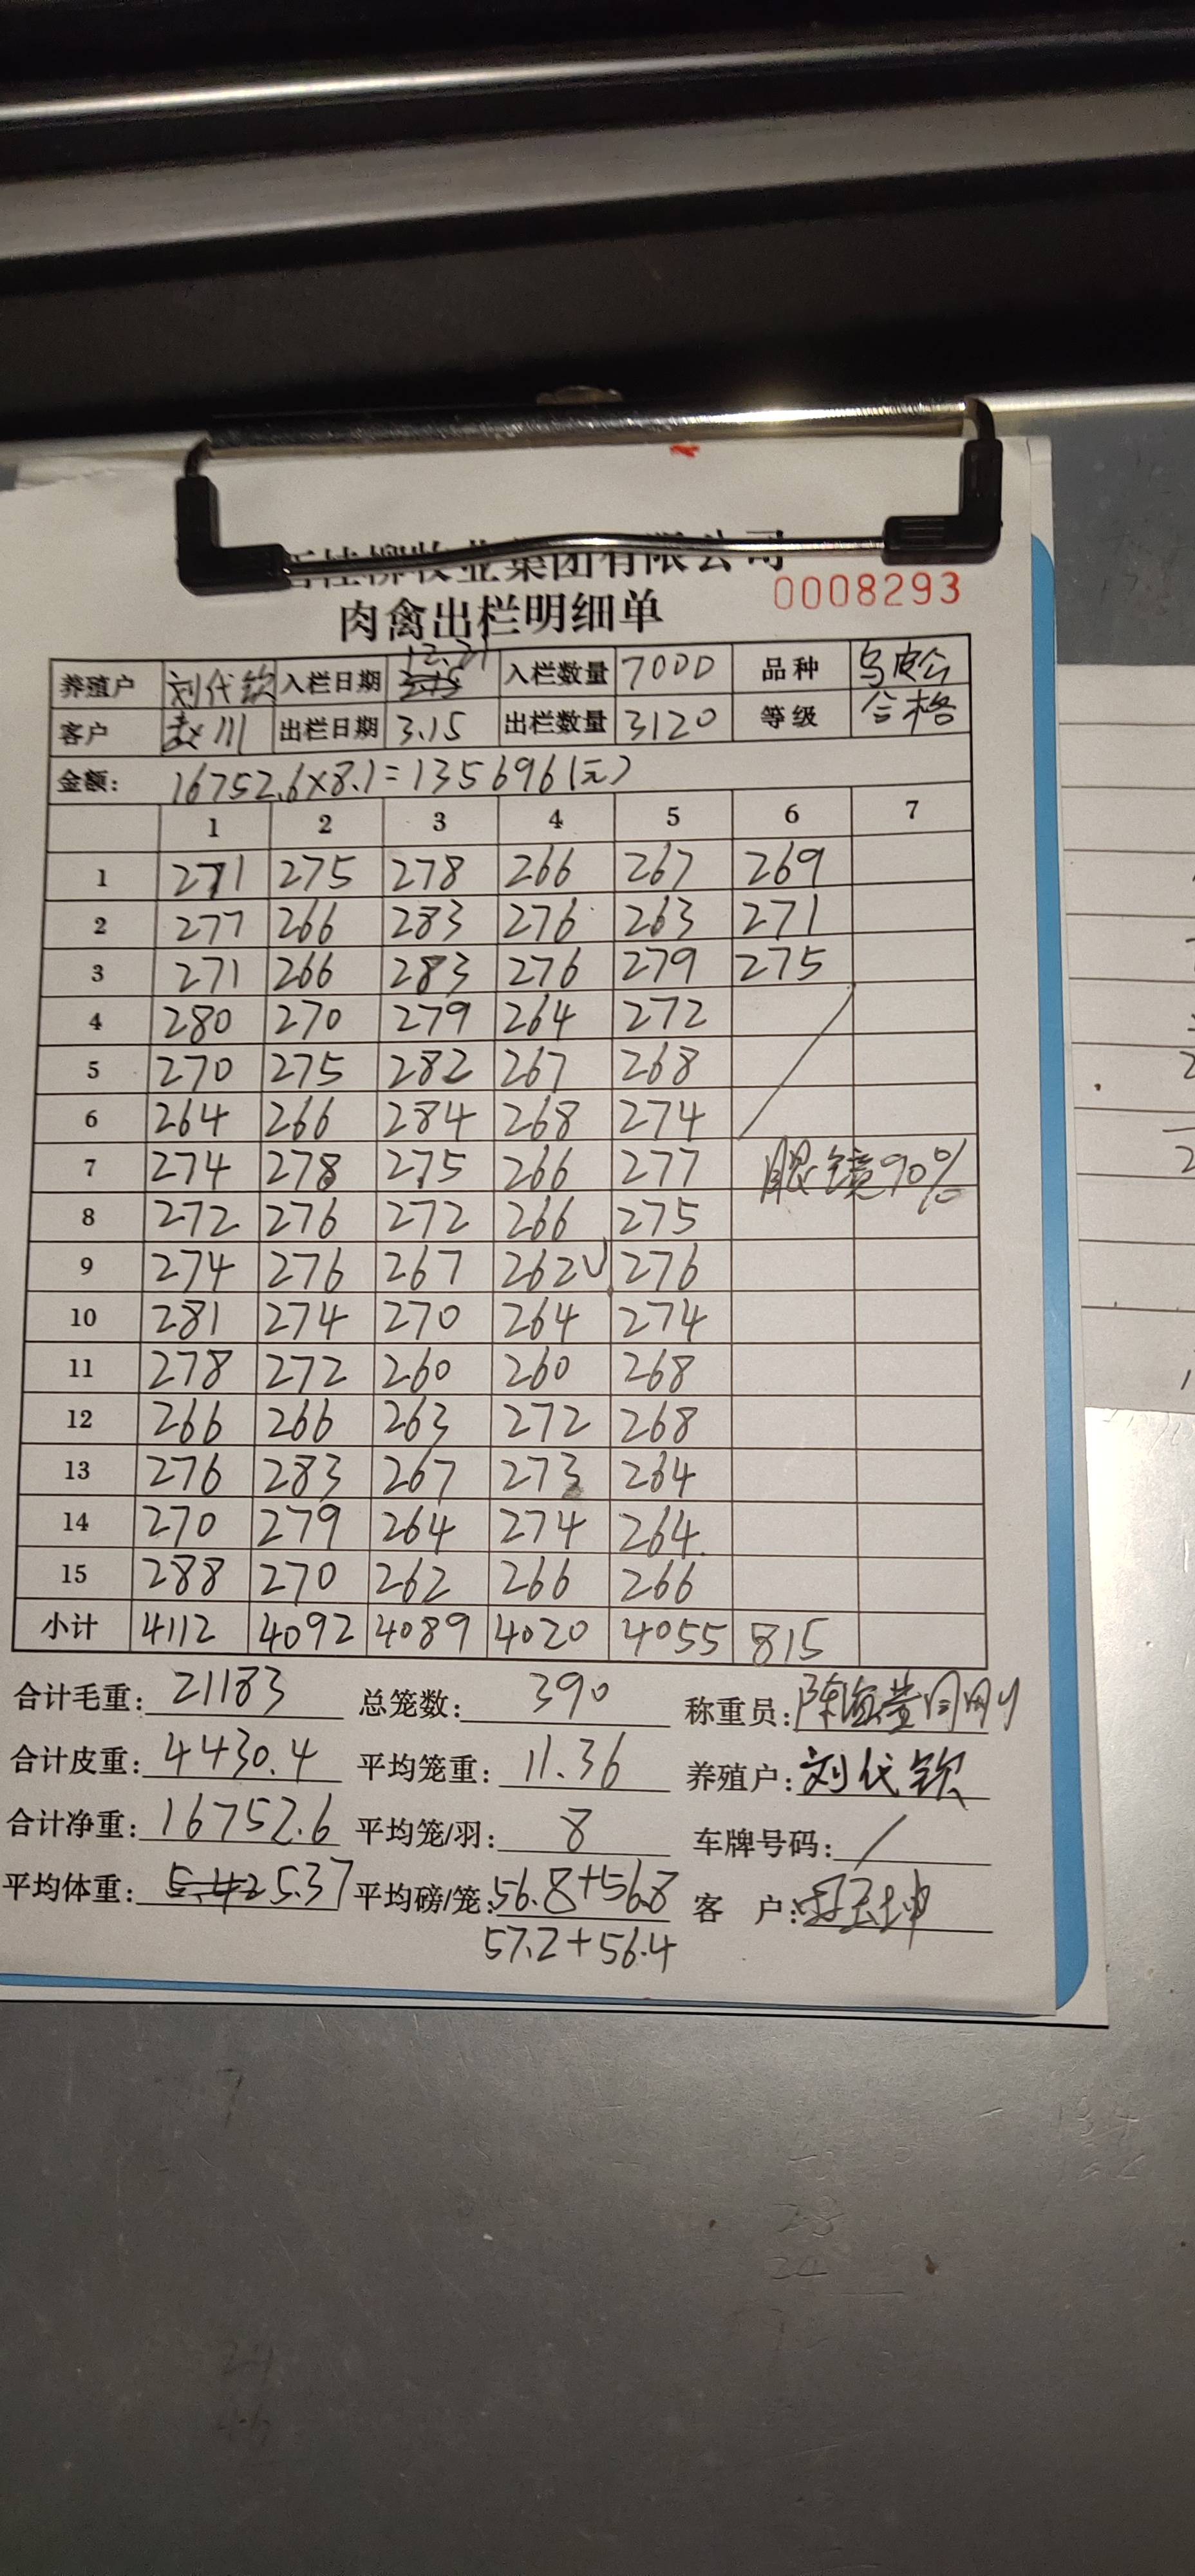 牧业集团有限公司
肉禽出栏明细单
0008293
养殖户 刘代钦 入栏日期 12.21 入栏数量 7000 品种 乌皮公
客户 赵川 出栏日期 3.15 出栏数量 3120 等级 合格
金额: 16752.6×8.1=135696(元)
1 2 3 4 5 6 7
1 271 275 278 266 267 269
2 277 266 283 276 263 271
3 271 266 283 276 279 275
4 280 270 279 264 272
5 270 275 282 267 268
6 264 266 284 268 274
7 274 278 275 266 277 眼镜90%
8 272 276 272 266 275
9 274 276 267 262 276
10 281 274 270 264 274
11 278 272 260 260 268
12 266 266 263 272 268
13 276 283 267 273 264
14 270 279 264 274 264
15 288 270 262 266 266
小计 4112 4092 4089 4020 4055 815
合计毛重: 21183 总笼数: 390 称重员:
合计皮重: 4430.4 平均笼重: 11.36 养殖户: 刘代钦
合计净重: 16752.6 平均笼/羽: 8 车牌号码: /
平均体重: 5.42 5.37 平均磅/笼: 56.8+56.8 客 户:
57.2+56.4